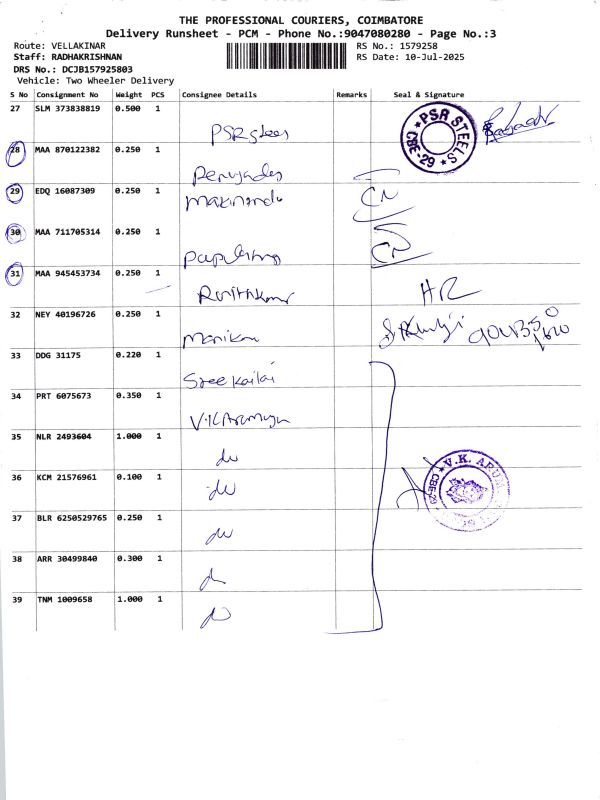 THE PROFESSIONAL COURIERS, COIMBATORE
Delivery Runsheet - PCM - Phone No.:9047080280 - Page No.:3
Route: VELLAKINAR
RS No.: 1579258
Staff: RADHAKRISHNAN
RS Date: 10-Jul-2025
DRS No.: DCJB157925803
Vehicle: Two Wheeler Delivery
S No Consignment No Weight PCS Consignee Details Remarks Seal & Signature
27 SLM 373838819 0.500 1
PSR Steels
PSR STEELS
★ CBE-29 ★
28 MAA 870122382 0.250 1
29 EDQ 16087309 0.250 1
30 MAA 711705314 0.250 1
31 MAA 945453734 0.250 1
HR
32 NEY 40196726 0.250 1
33 DDG 31175 0.220 1
Sree Kailai
34 PRT 6075673 0.350 1
35 NLR 2493604 1.000 1
do
V.K. ARU
CBE-29
36 KCM 21576961 0.100 1
do
37 BLR 6250529765 0.250 1
do
38 ARR 30499840 0.300 1
39 TNM 1009658 1.000 1
do